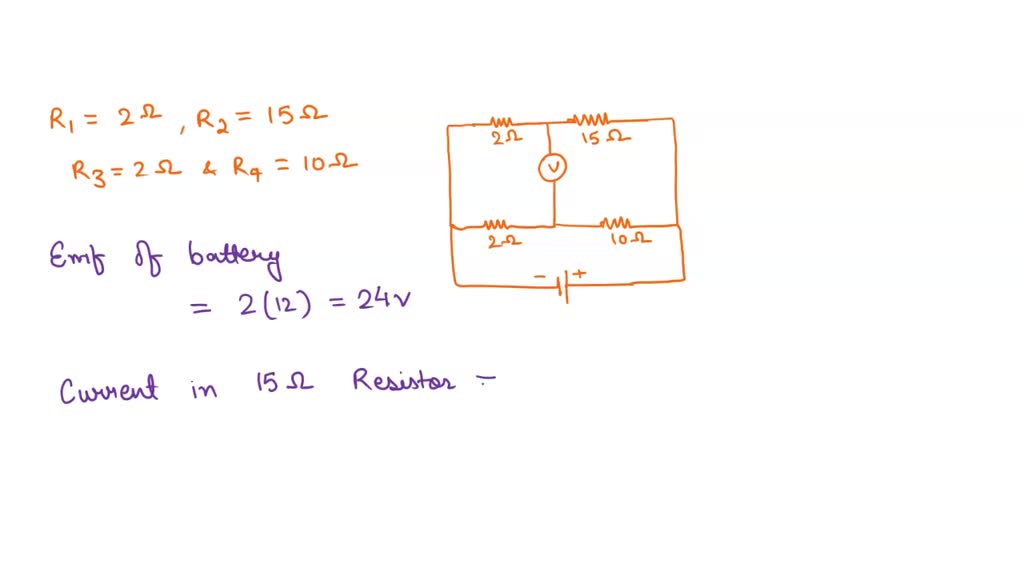 R1 = 2Ω , R2 = 15Ω
R3 = 2Ω & R4 = 10Ω
2Ω 15Ω
V
2Ω 10Ω
- +
Emf of battery
= 2(12) = 24V
Current in 15Ω Resistor =